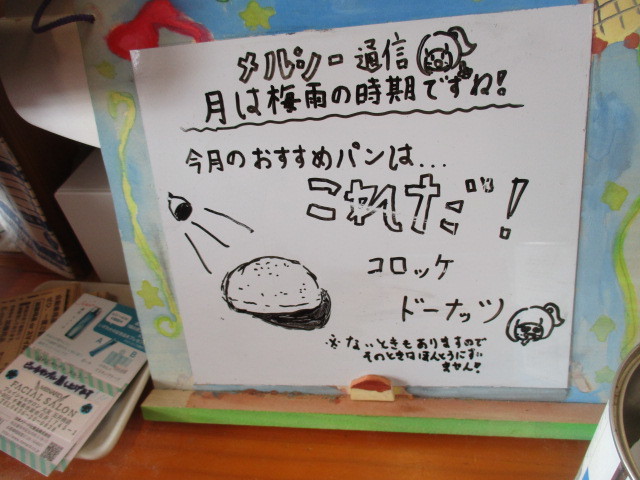 メルパンー通信
月は梅雨の時期ですね!
今月のおすすめパンは...
これだ!
コロッケ
ドーナッツ
※ないときもありますので
そのときはほんとうにすい
ません!
FACIAL SALON